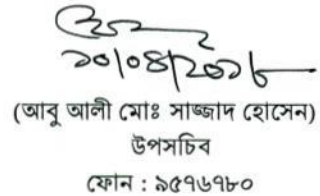 ১০/০৪/২০১৮
(আবু আলী মোঃ সাজ্জাদ হোসেন)
উপসচিব
ফোন : ৯৫৭৬৭৮০